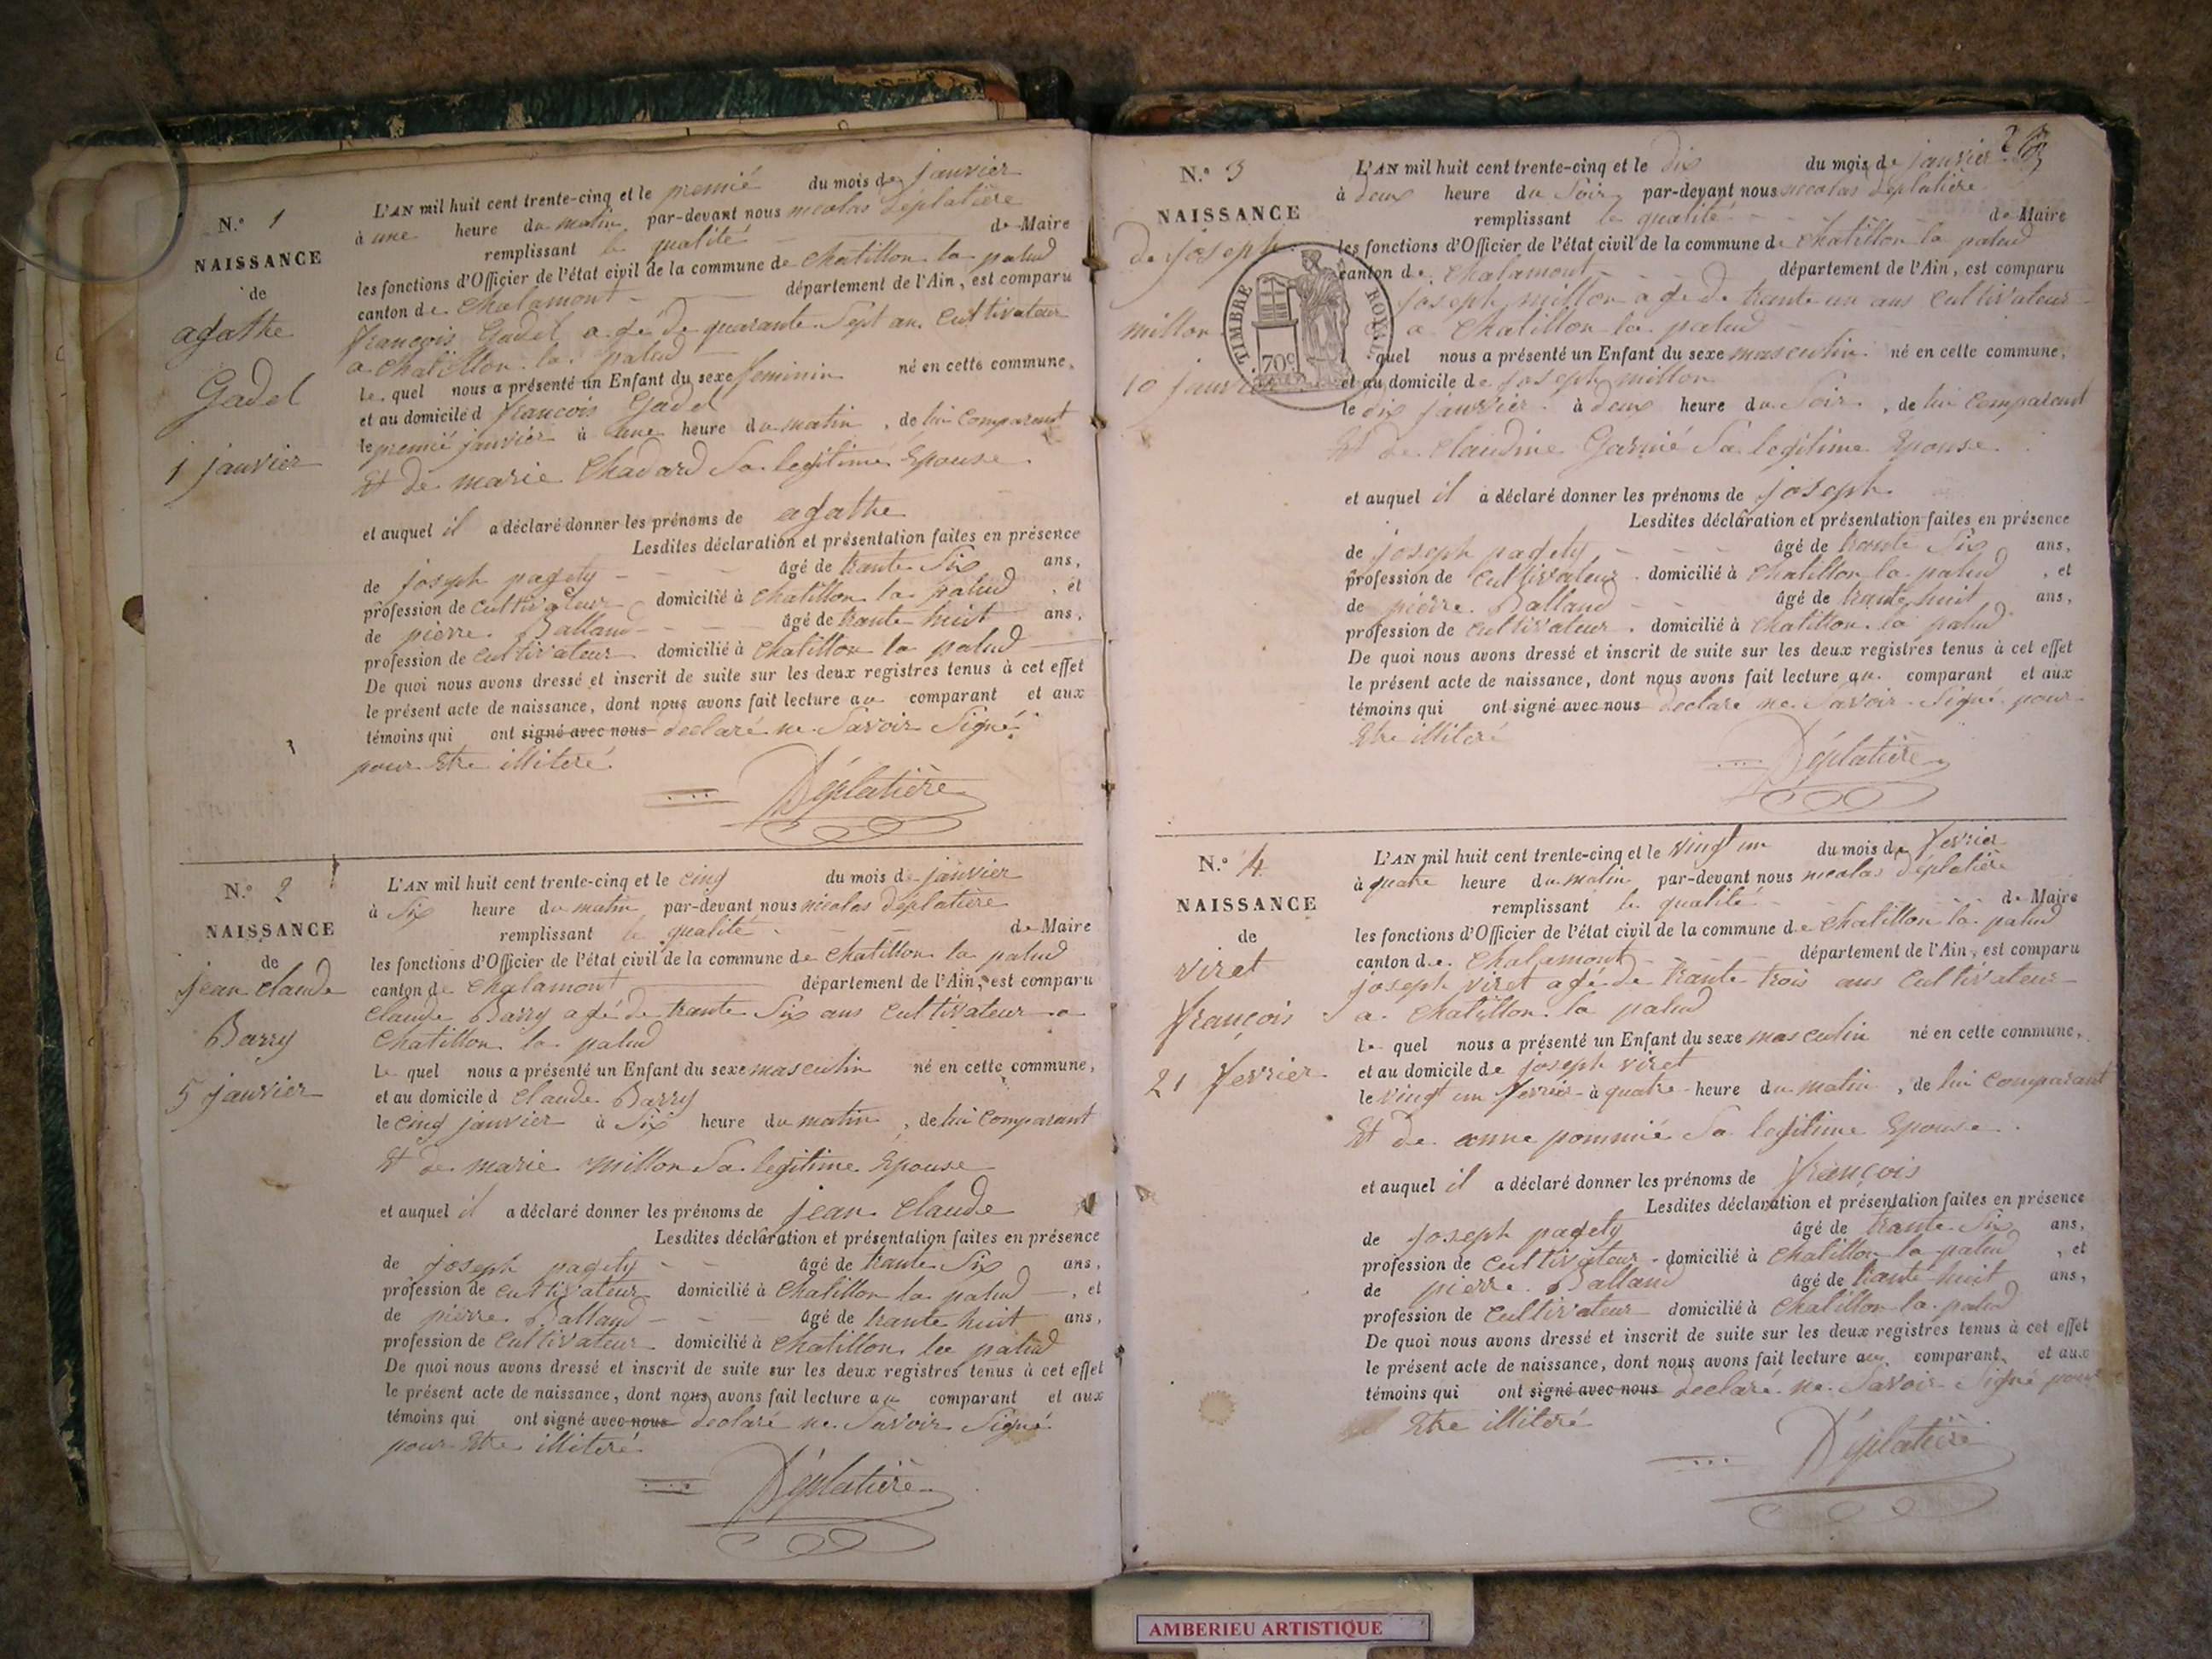 N.o 1
NAISSANCE
de
agathe
Gadel
1 janvier
L'AN mil huit cent trente-cinq et le premié du mois de janvier
à une heure du matin par-devant nous nicolas Déplatière
remplissant la qualité de Maire
les fonctions d'Officier de l'état civil de la commune de Chatillon la palud
canton de Chalamont département de l'Ain, est comparu
françois Gadel agé de quarante Sept an Cultivateur
a Chatillon la palud
le quel nous a présenté un Enfant du sexe feminin né en cette commune,
et au domicile d françois Gadel
le premié janvier à une heure du matin, de lui Comparent
Et de marie Chadard Sa legitime Epouse
et auquel il a déclaré donner les prénoms de agathe
Lesdites déclaration et présentation faites en présence
de joseph pagety âgé de trante Six ans,
profession de Cultivateur domicilié à Chatillon la palud, et
de pierre Balland âgé de trante huit ans,
profession de Cultivateur domicilié à Chatillon la palud
De quoi nous avons dressé et inscrit de suite sur les deux registres tenus à cet effet
le présent acte de naissance, dont nous avons fait lecture au comparant et aux
témoins qui ont signé avec nous declaré ne Savoir Signé
pour Etre illiteré
Déplatière
N.o 2
NAISSANCE
de
jean claude
Barry
5 janvier
L'AN mil huit cent trente-cinq et le cinq du mois de janvier
à Six heure du matin par-devant nous nicolas Déplatière
remplissant la qualité de Maire
les fonctions d'Officier de l'état civil de la commune de Chatillon la palud
canton de Chalamont département de l'Ain, est comparu
Claude Barry agé de trante Six ans Cultivateur a
Chatillon la palud
le quel nous a présenté un Enfant du sexe masculin né en cette commune,
et au domicile d Claude Barry
le Cinq janvier à Six heure du matin, de lui Comparant
Et de marie millon Sa legitime Epouse
et auquel il a déclaré donner les prénoms de jean Claude
Lesdites déclaration et présentation faites en présence
de joseph pagety âgé de trante Six ans,
profession de Cultivateur domicilié à Chatillon la palud, et
de pierre Balland âgé de trante huit ans,
profession de Cultivateur domicilié à Chatillon la palud
De quoi nous avons dressé et inscrit de suite sur les deux registres tenus à cet effet
le présent acte de naissance, dont nous avons fait lecture au comparant et aux
témoins qui ont signé avec nous declaré ne Savoir Signé
pour Etre illiteré
Déplatière
N.o 3
NAISSANCE
de joseph
millon
10 janvier
TIMBRE ROYAL
70c
L'AN mil huit cent trente-cinq et le dix du mois de janvier
à deux heure du Soir par-devant nous nicolas Déplatière
remplissant la qualité de Maire
les fonctions d'Officier de l'état civil de la commune de Chatillon la palud
canton de Chalamont département de l'Ain, est comparu
joseph millon agé de trante un ans Cultivateur
a Chatillon la palud
quel nous a présenté un Enfant du sexe masculin né en cette commune,
et au domicile de joseph millon
le dix janvier à deux heure du Soir, de lui Comparent
Et de Claudine Garnié Sa legitime Epouse
et auquel il a déclaré donner les prénoms de joseph
Lesdites déclaration et présentation faites en présence
de joseph pagety âgé de trante Six ans,
profession de Cultivateur domicilié à Chatillon la palud, et
de pierre Balland âgé de trante huit ans,
profession de Cultivateur domicilié à Chatillon la palud
De quoi nous avons dressé et inscrit de suite sur les deux registres tenus à cet effet
le présent acte de naissance, dont nous avons fait lecture au comparant et aux
témoins qui ont signé avec nous declaré ne Savoir Signé pour
Etre illiteré
Déplatière
N.o 4
NAISSANCE
de
viret
françois
21 fevrier
L'AN mil huit cent trente-cinq et le vingt un du mois de fevrier
à quatre heure du matin par-devant nous nicolas Déplatière
remplissant la qualité de Maire
les fonctions d'Officier de l'état civil de la commune de Chatillon la palud
canton de Chalamont département de l'Ain, est comparu
joseph viret agé de trante trois ans Cultivateur
a Chatillon la palud
le quel nous a présenté un Enfant du sexe masculin né en cette commune,
et au domicile de joseph viret
le vingt un fevrier à quatre heure du matin, de lui Comparant
Et de anne pommié Sa legitime Epouse
et auquel il a déclaré donner les prénoms de françois
Lesdites déclaration et présentation faites en présence
de joseph pagety âgé de trante Six ans,
profession de Cultivateur domicilié à Chatillon la palud, et
de pierre Balland âgé de trante huit ans,
profession de Cultivateur domicilié à Chatillon la palud
De quoi nous avons dressé et inscrit de suite sur les deux registres tenus à cet effet
le présent acte de naissance, dont nous avons fait lecture au comparant et aux
témoins qui ont signé avec nous declaré ne Savoir Signé pour
Etre illiteré
Déplatière
AMBERIEU ARTISTIQUE